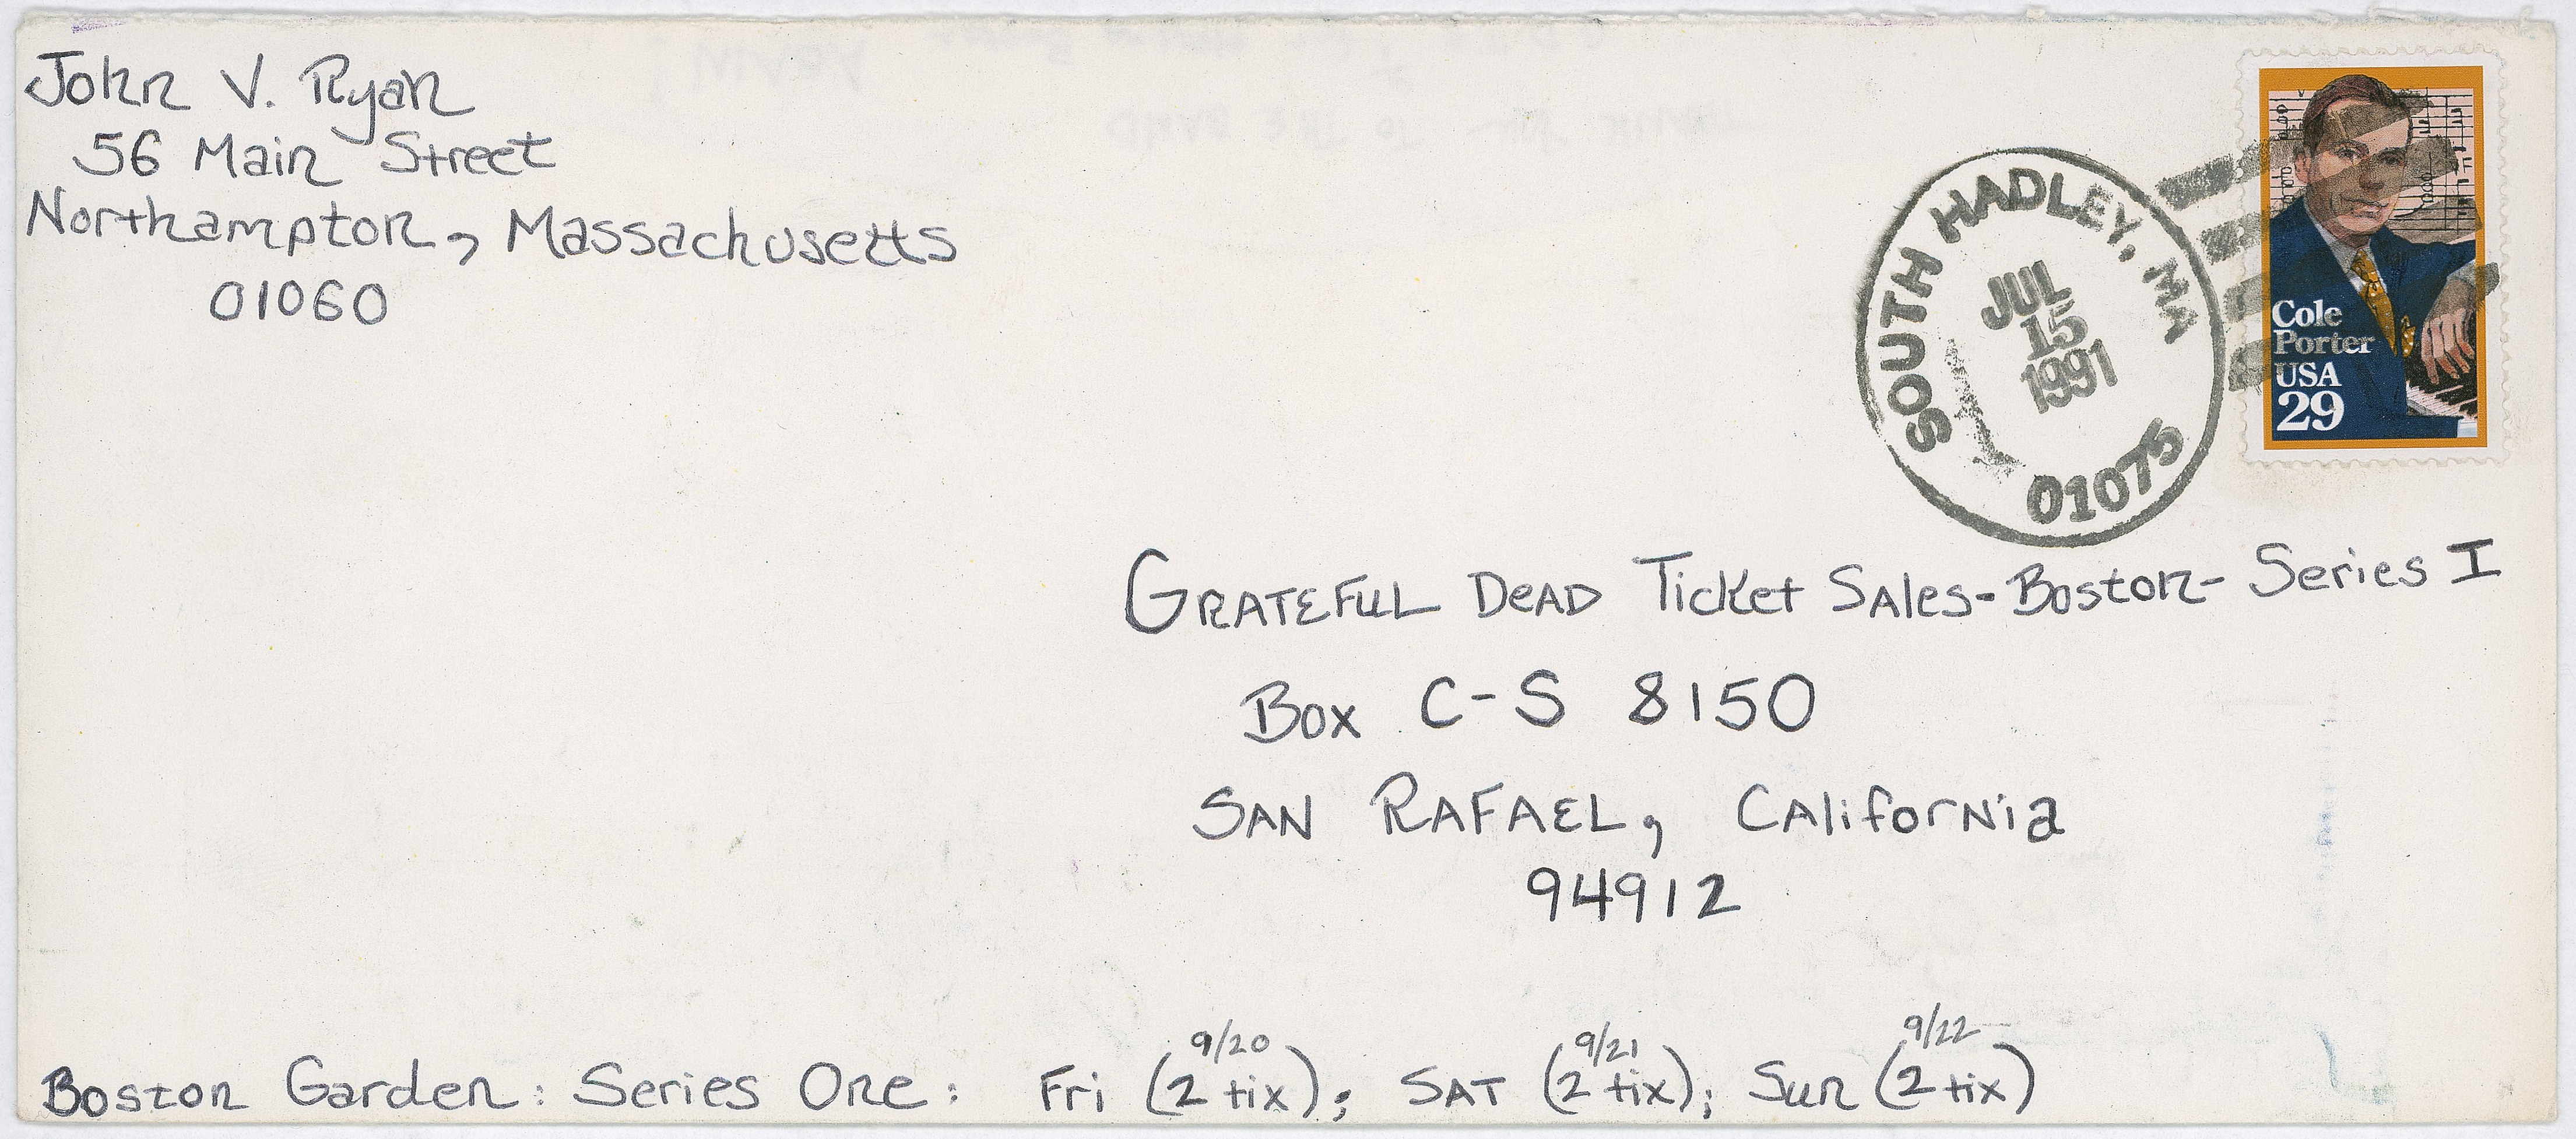 John V. Ryan
56 Main Street
Northampton, Massachusetts
01060
SOUTH HADLEY, MA
JUL
15
1991
01075
Cole
Porter
USA
29
GRATEFUL DeAD Ticket SAles-Boston- Series I
Box C-S 8150
SAN RAFAEL, CAliforNia
94912
9/20 9/21 9/22
Boston Garden: Series One: Fri (2 tix); SAT (2 tix); Sun (2 tix)